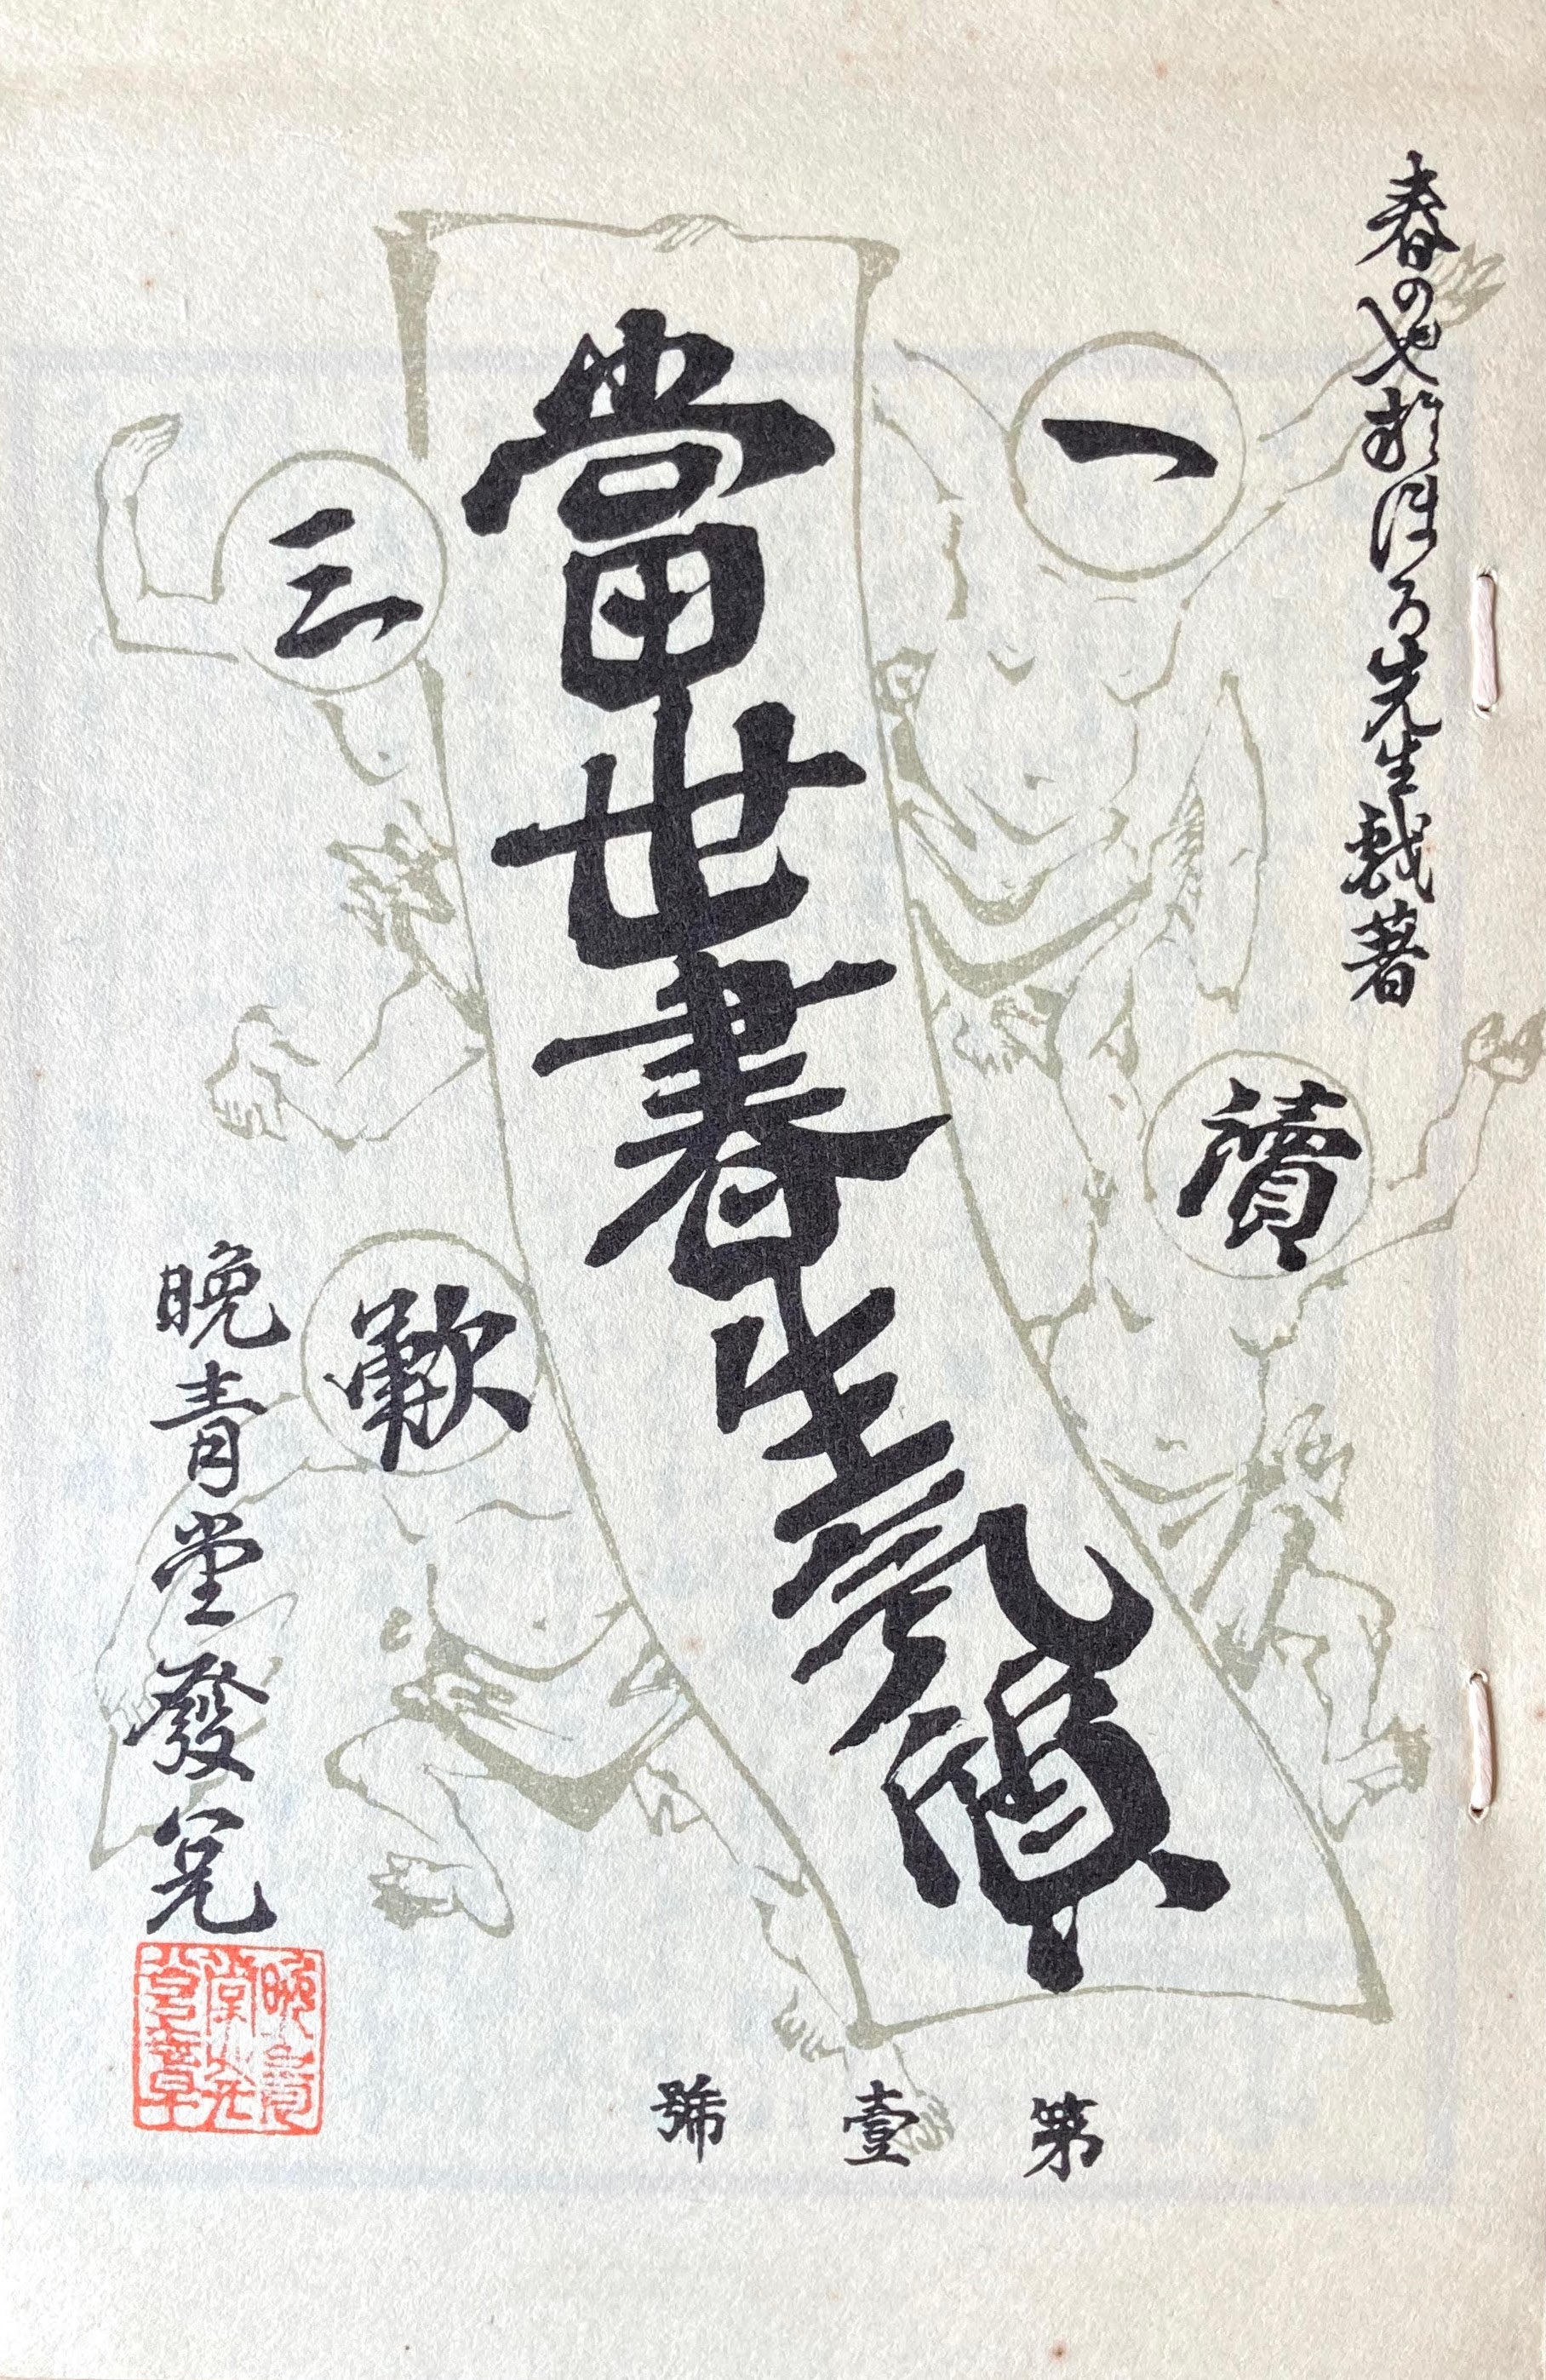 春のやおほろ先生戯著
一讀三歎
當世書生氣質
晩青堂發兌
第壹號